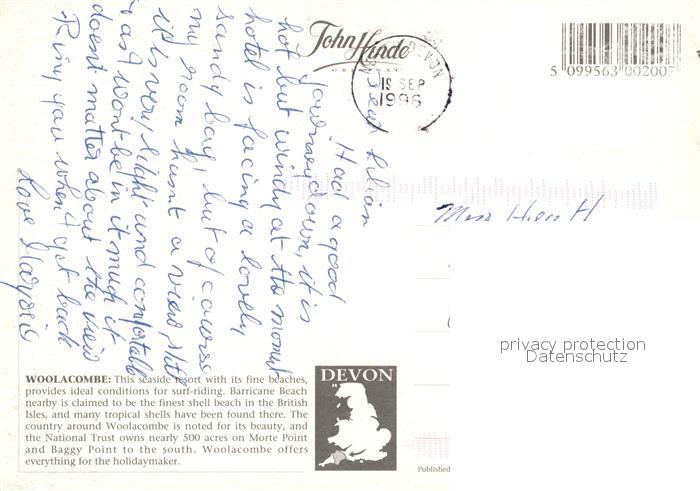 John Hinde
ORIGINAL
DEVON
19 SEP
1996
5 099563 00200
Dear Lilian
Had a good
journey down, it is
hot but windy at the moment
hotel is facing a lovely
sandy bay, but of course
my room hasn't a view, still
it is very light and comfortable
as I won't be in it much it
doesn't matter about the view
Ring you when I get back
Love Marjorie
Miss H
privacy protection
Datenschutz
WOOLACOMBE: This seaside resort with its fine beaches,
provides ideal conditions for surf-riding. Barricane Beach
nearby is claimed to be the finest shell beach in the British
Isles, and many tropical shells have been found there. The
country around Woolacombe is noted for its beauty, and
the National Trust owns nearly 500 acres on Morte Point
and Baggy Point to the south. Woolacombe offers
everything for the holidaymaker.
DEVON
Published